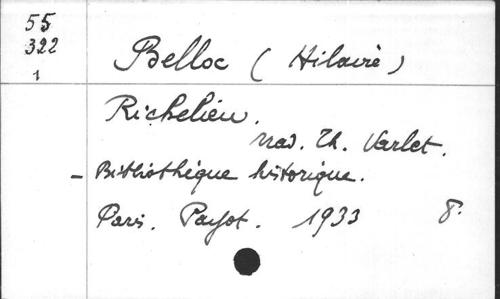 55
322
1
Belloc (Hilaire)
Richelieu.
trad. Th. Varlet.
- Bibliothèque historique.
Paris. Payot. 1933 8°